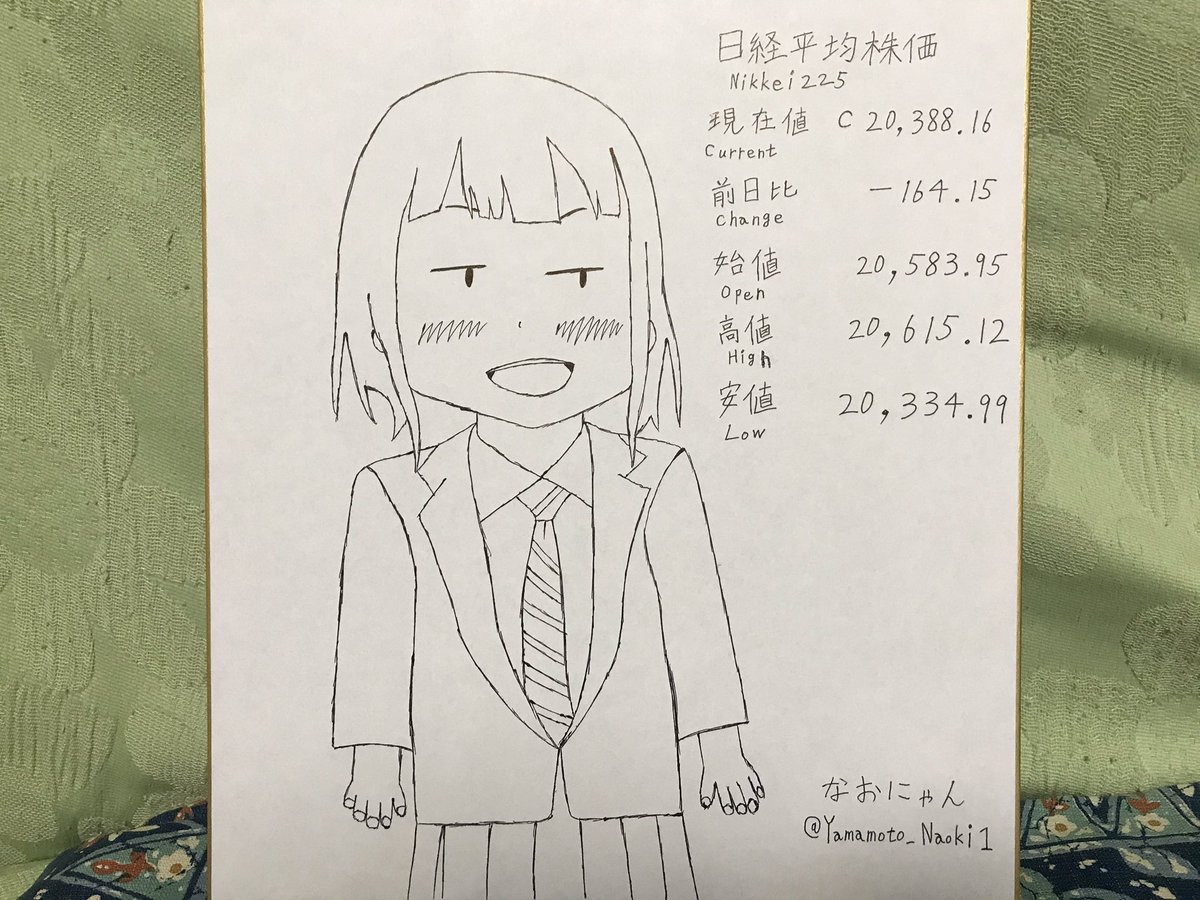 日経平均株価
Nikkei225
現在値 C 20,388.16
Current
前日比 -164.15
Change
始値 20,583.95
Open
高値 20,615.12
High
安値 20,334.99
Low
なおにゃん
@Yamamoto_Naoki1